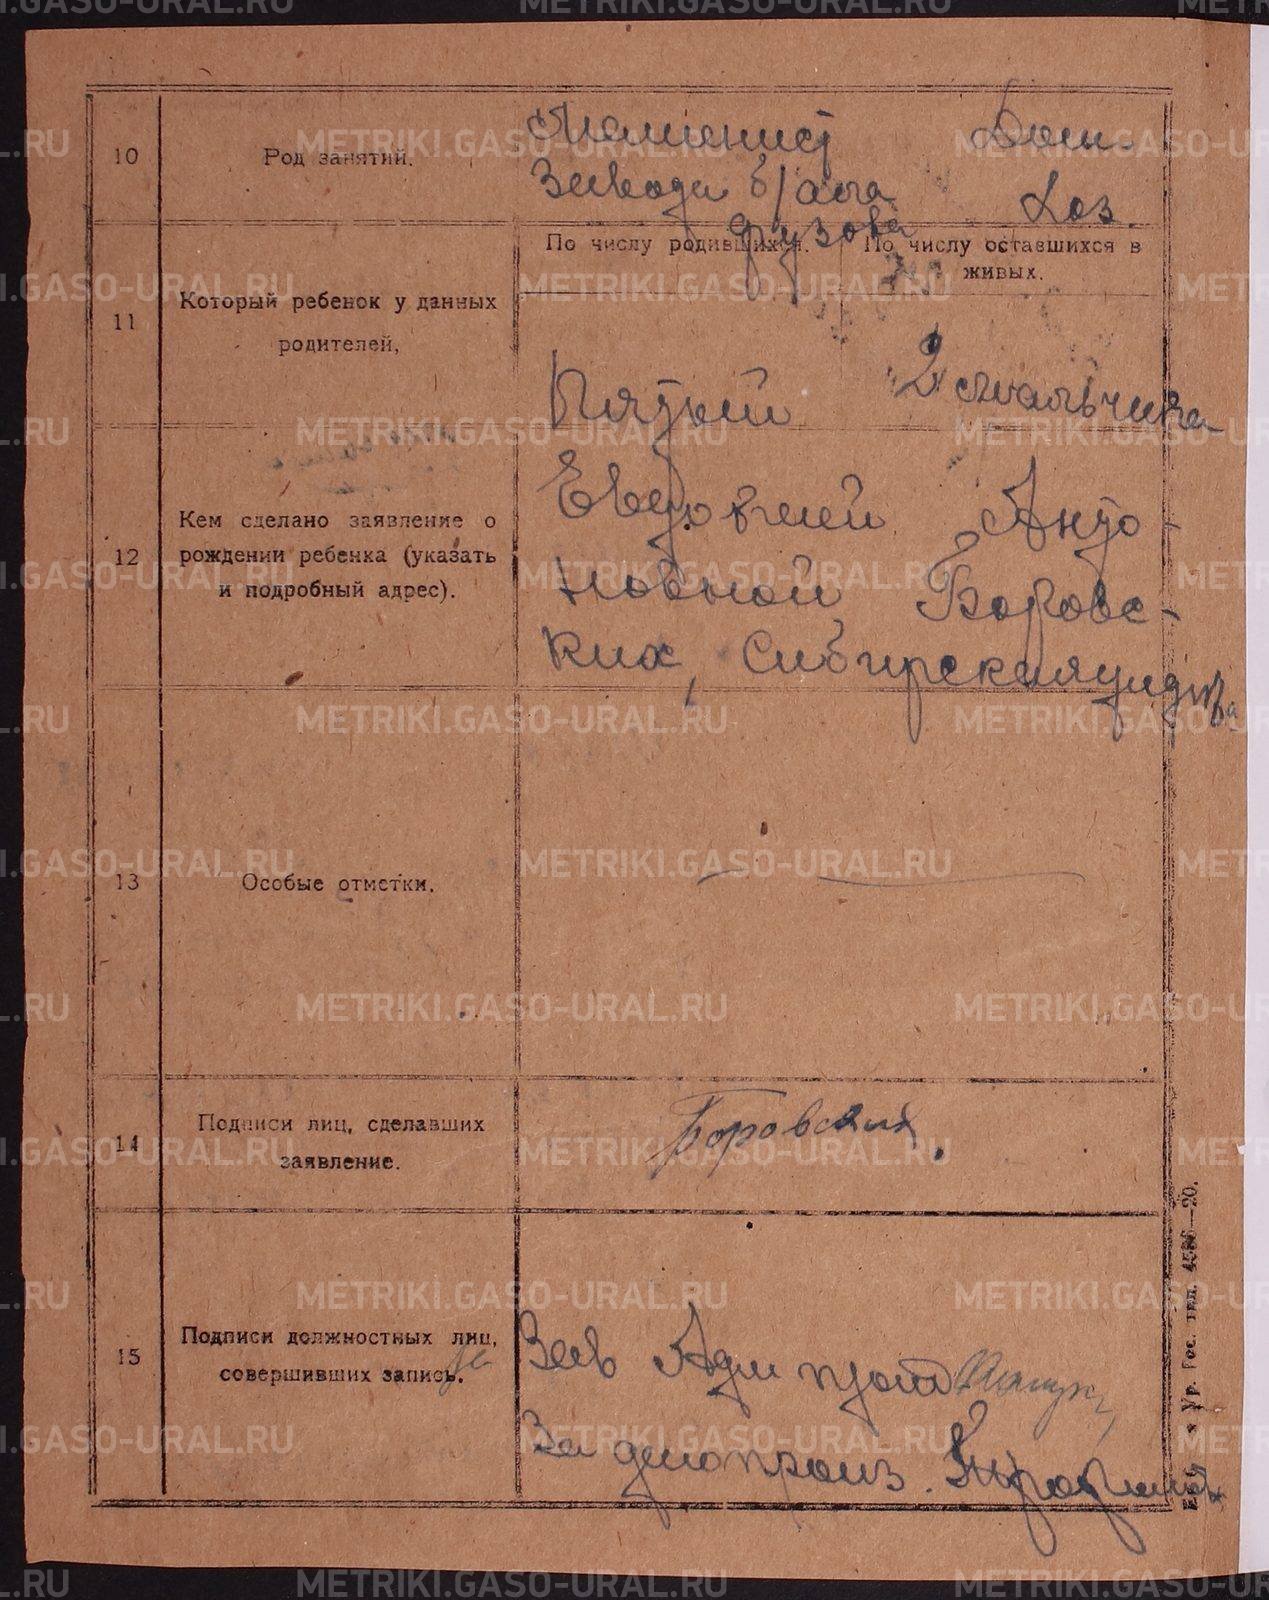 10
Род занятий.
Машинист Дом.
Завода Хоз.
11
Который ребенок у данных
родителей,
По числу родившихся.
По числу оставшихся в
живых.
Пятый 2 мальчика
12
Кем сделано заявление о
рождении ребенка (указать
и подробный адрес).
Евдокией Анто-
новной Боровс-
ких, Сибирская улица
13
Особые отметки.
14
Подписи лиц, сделавших
заявление.
Боровских.
15
Подписи должностных лиц,
совершивших запись.
За Зав
За делопроиз.
Ур. Гос. тип. 4586—20.
METRIKI.GASO-URAL.RU